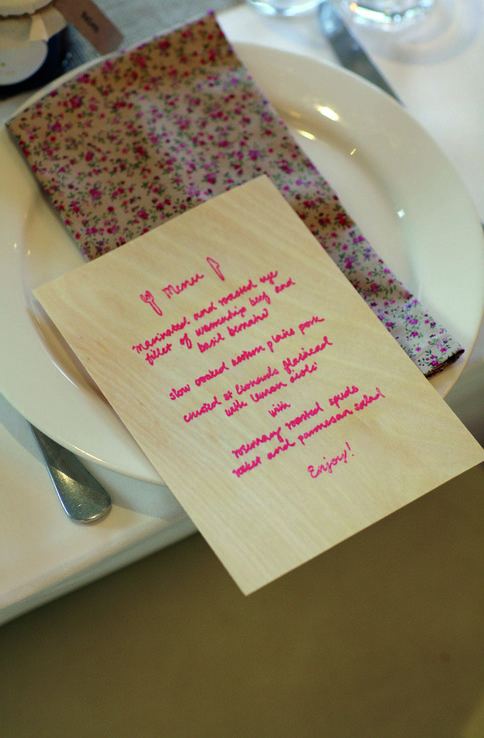 Menu
Marinated and roasted eye
fillet of warmship beef and
basil bernaise
slow cooked western plains pork
crusted st leonards flathead
with lemon aioli
with
rosemary roasted spuds
rocket and parmesan salad
Enjoy!